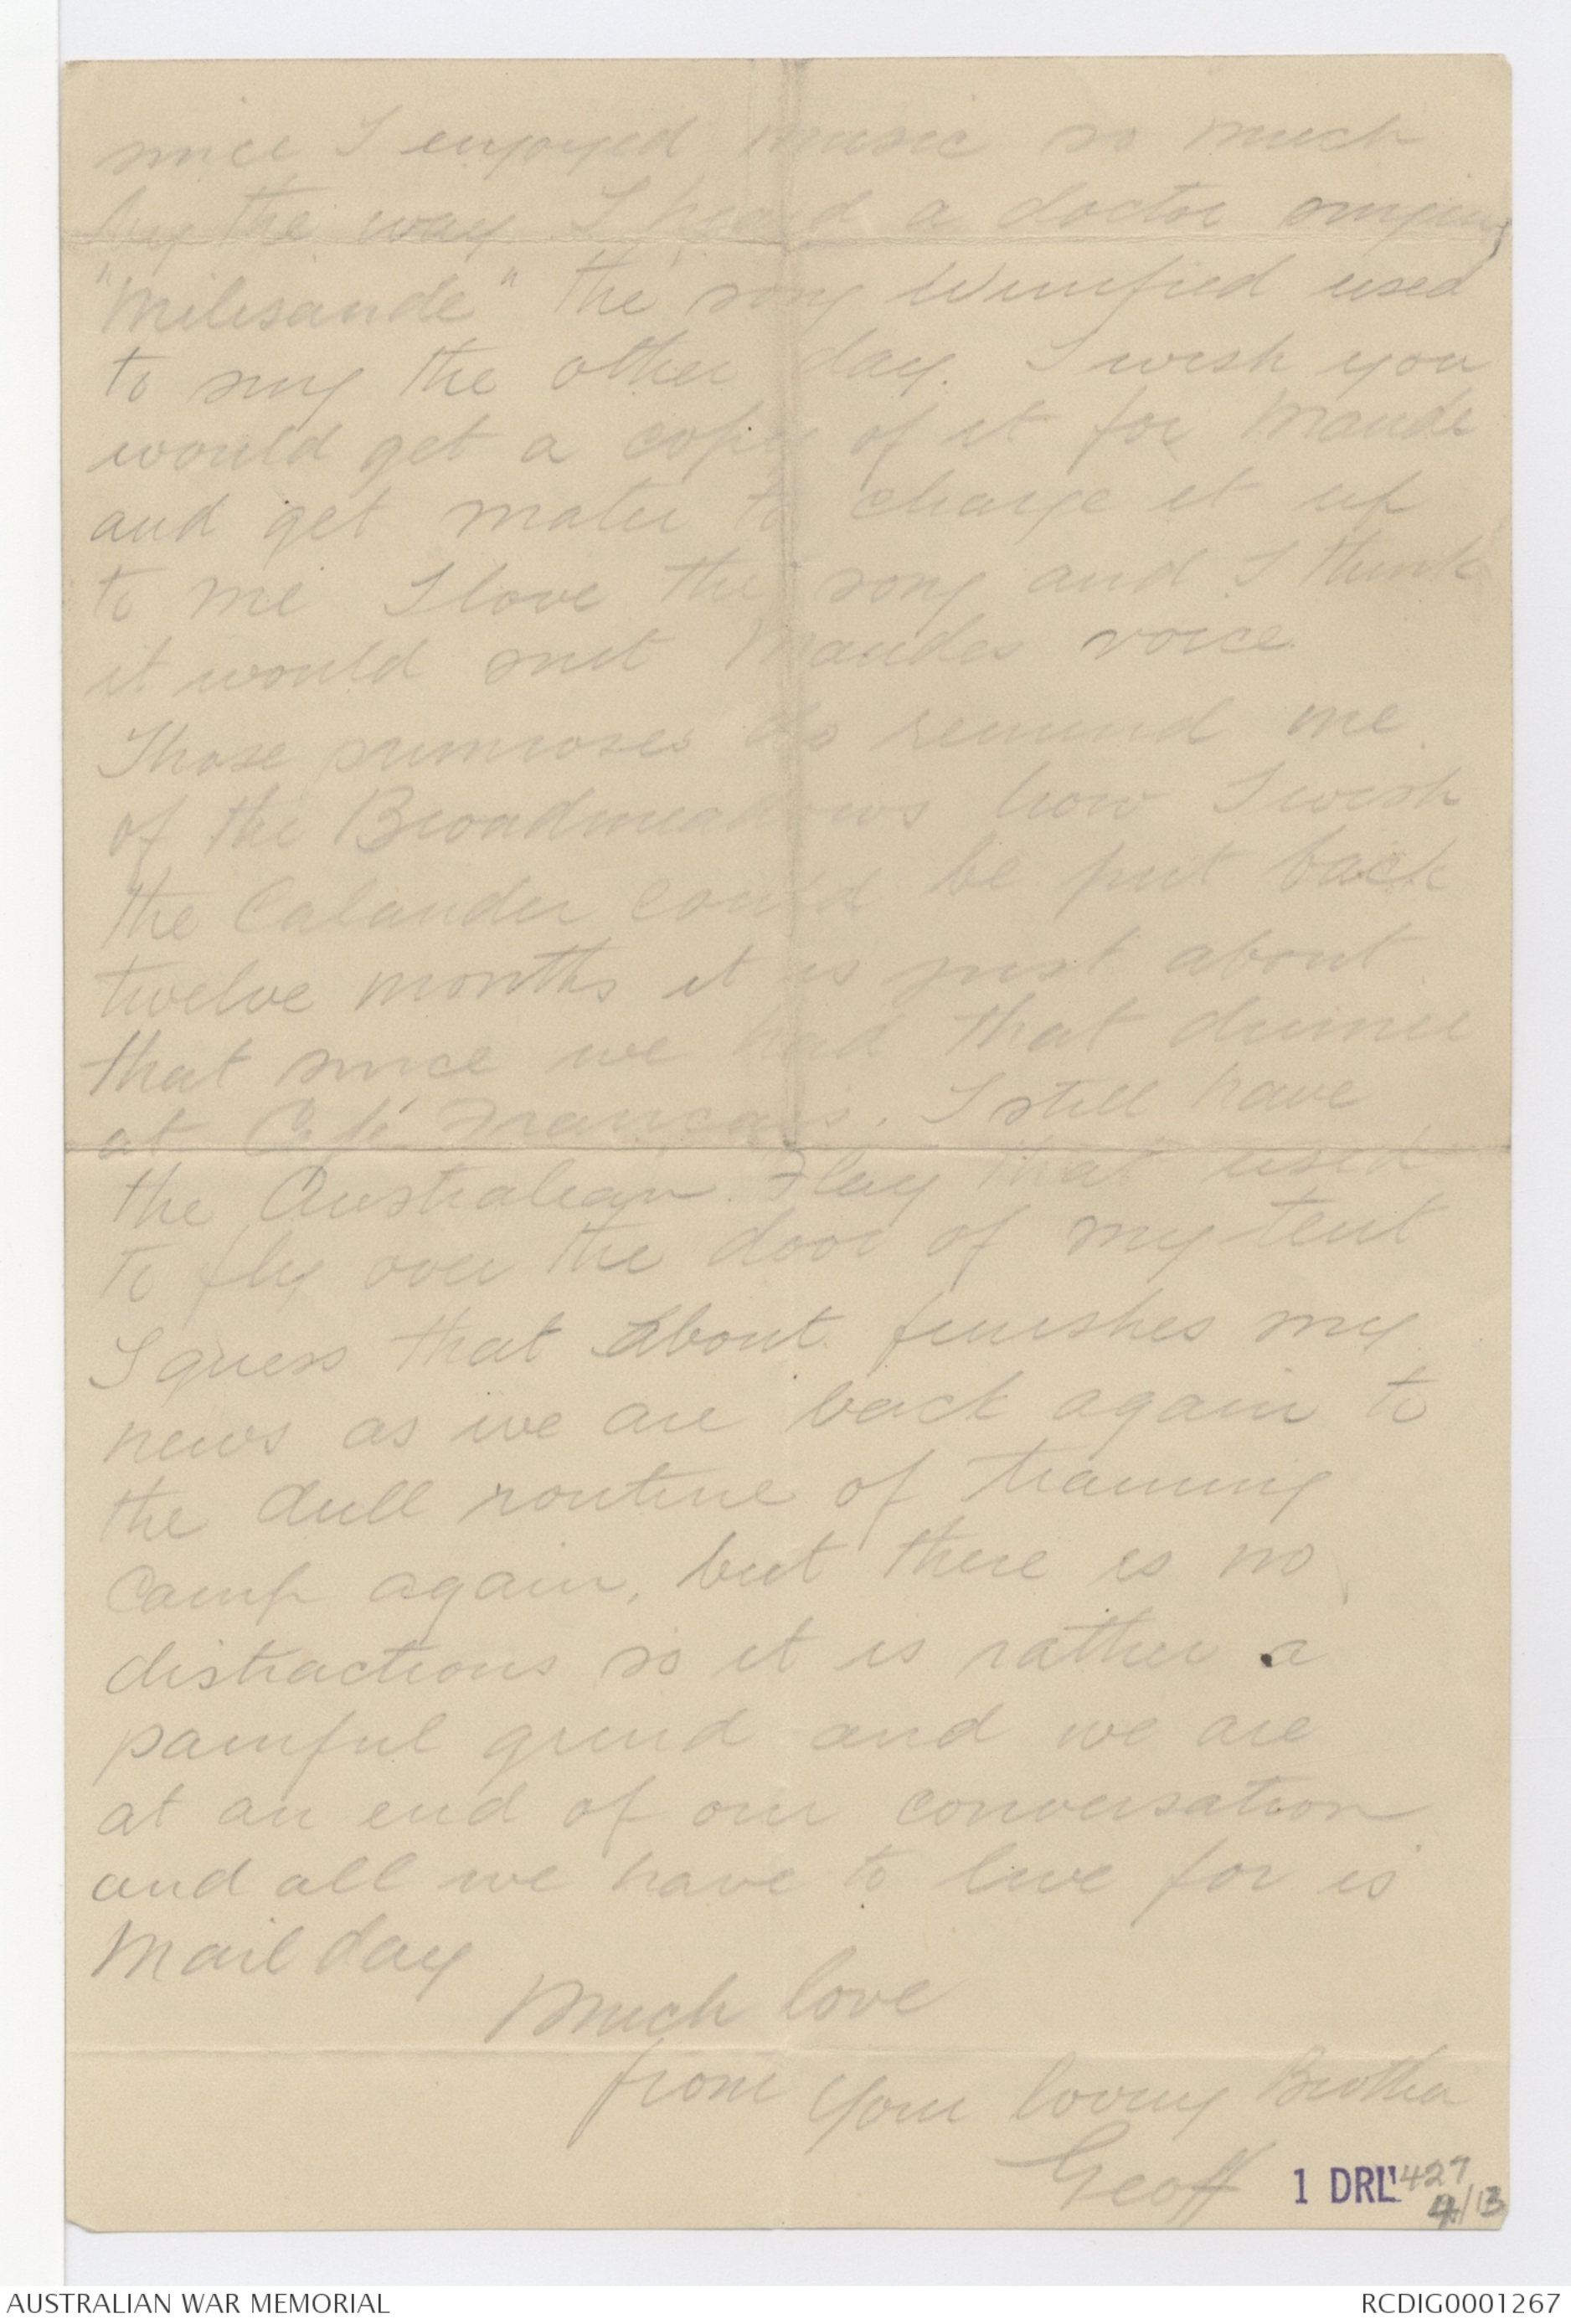 since I enjoyed music so much
by the way I heard a doctor singing
"Milisande" the song Winifred used
to sing the other day. I wish you
would get a copy of it for Maude
and get mater to charge it up
to me I love the song and I think
it would suit Maudes voice.
Those primroses do remind me
of the Broadmeadows how I wish
the Calander could be put back
twelve months it is just about
that since we had that dinner
at Café Francais. I still have
the Australian Flag that used
to fly over the door of my tent
I guess that about finishes my
news as we are back again to
the dull routine of training
Camp again, but there is no
distractions so it is rather a
painful grind and we are
at an end of our conversation
and all we have to live for is
Mail day
Much love
from your loving Brother
Geoff
1 DRL 427
4/13
AUSTRALIAN WAR MEMORIAL
RCDIG0001267